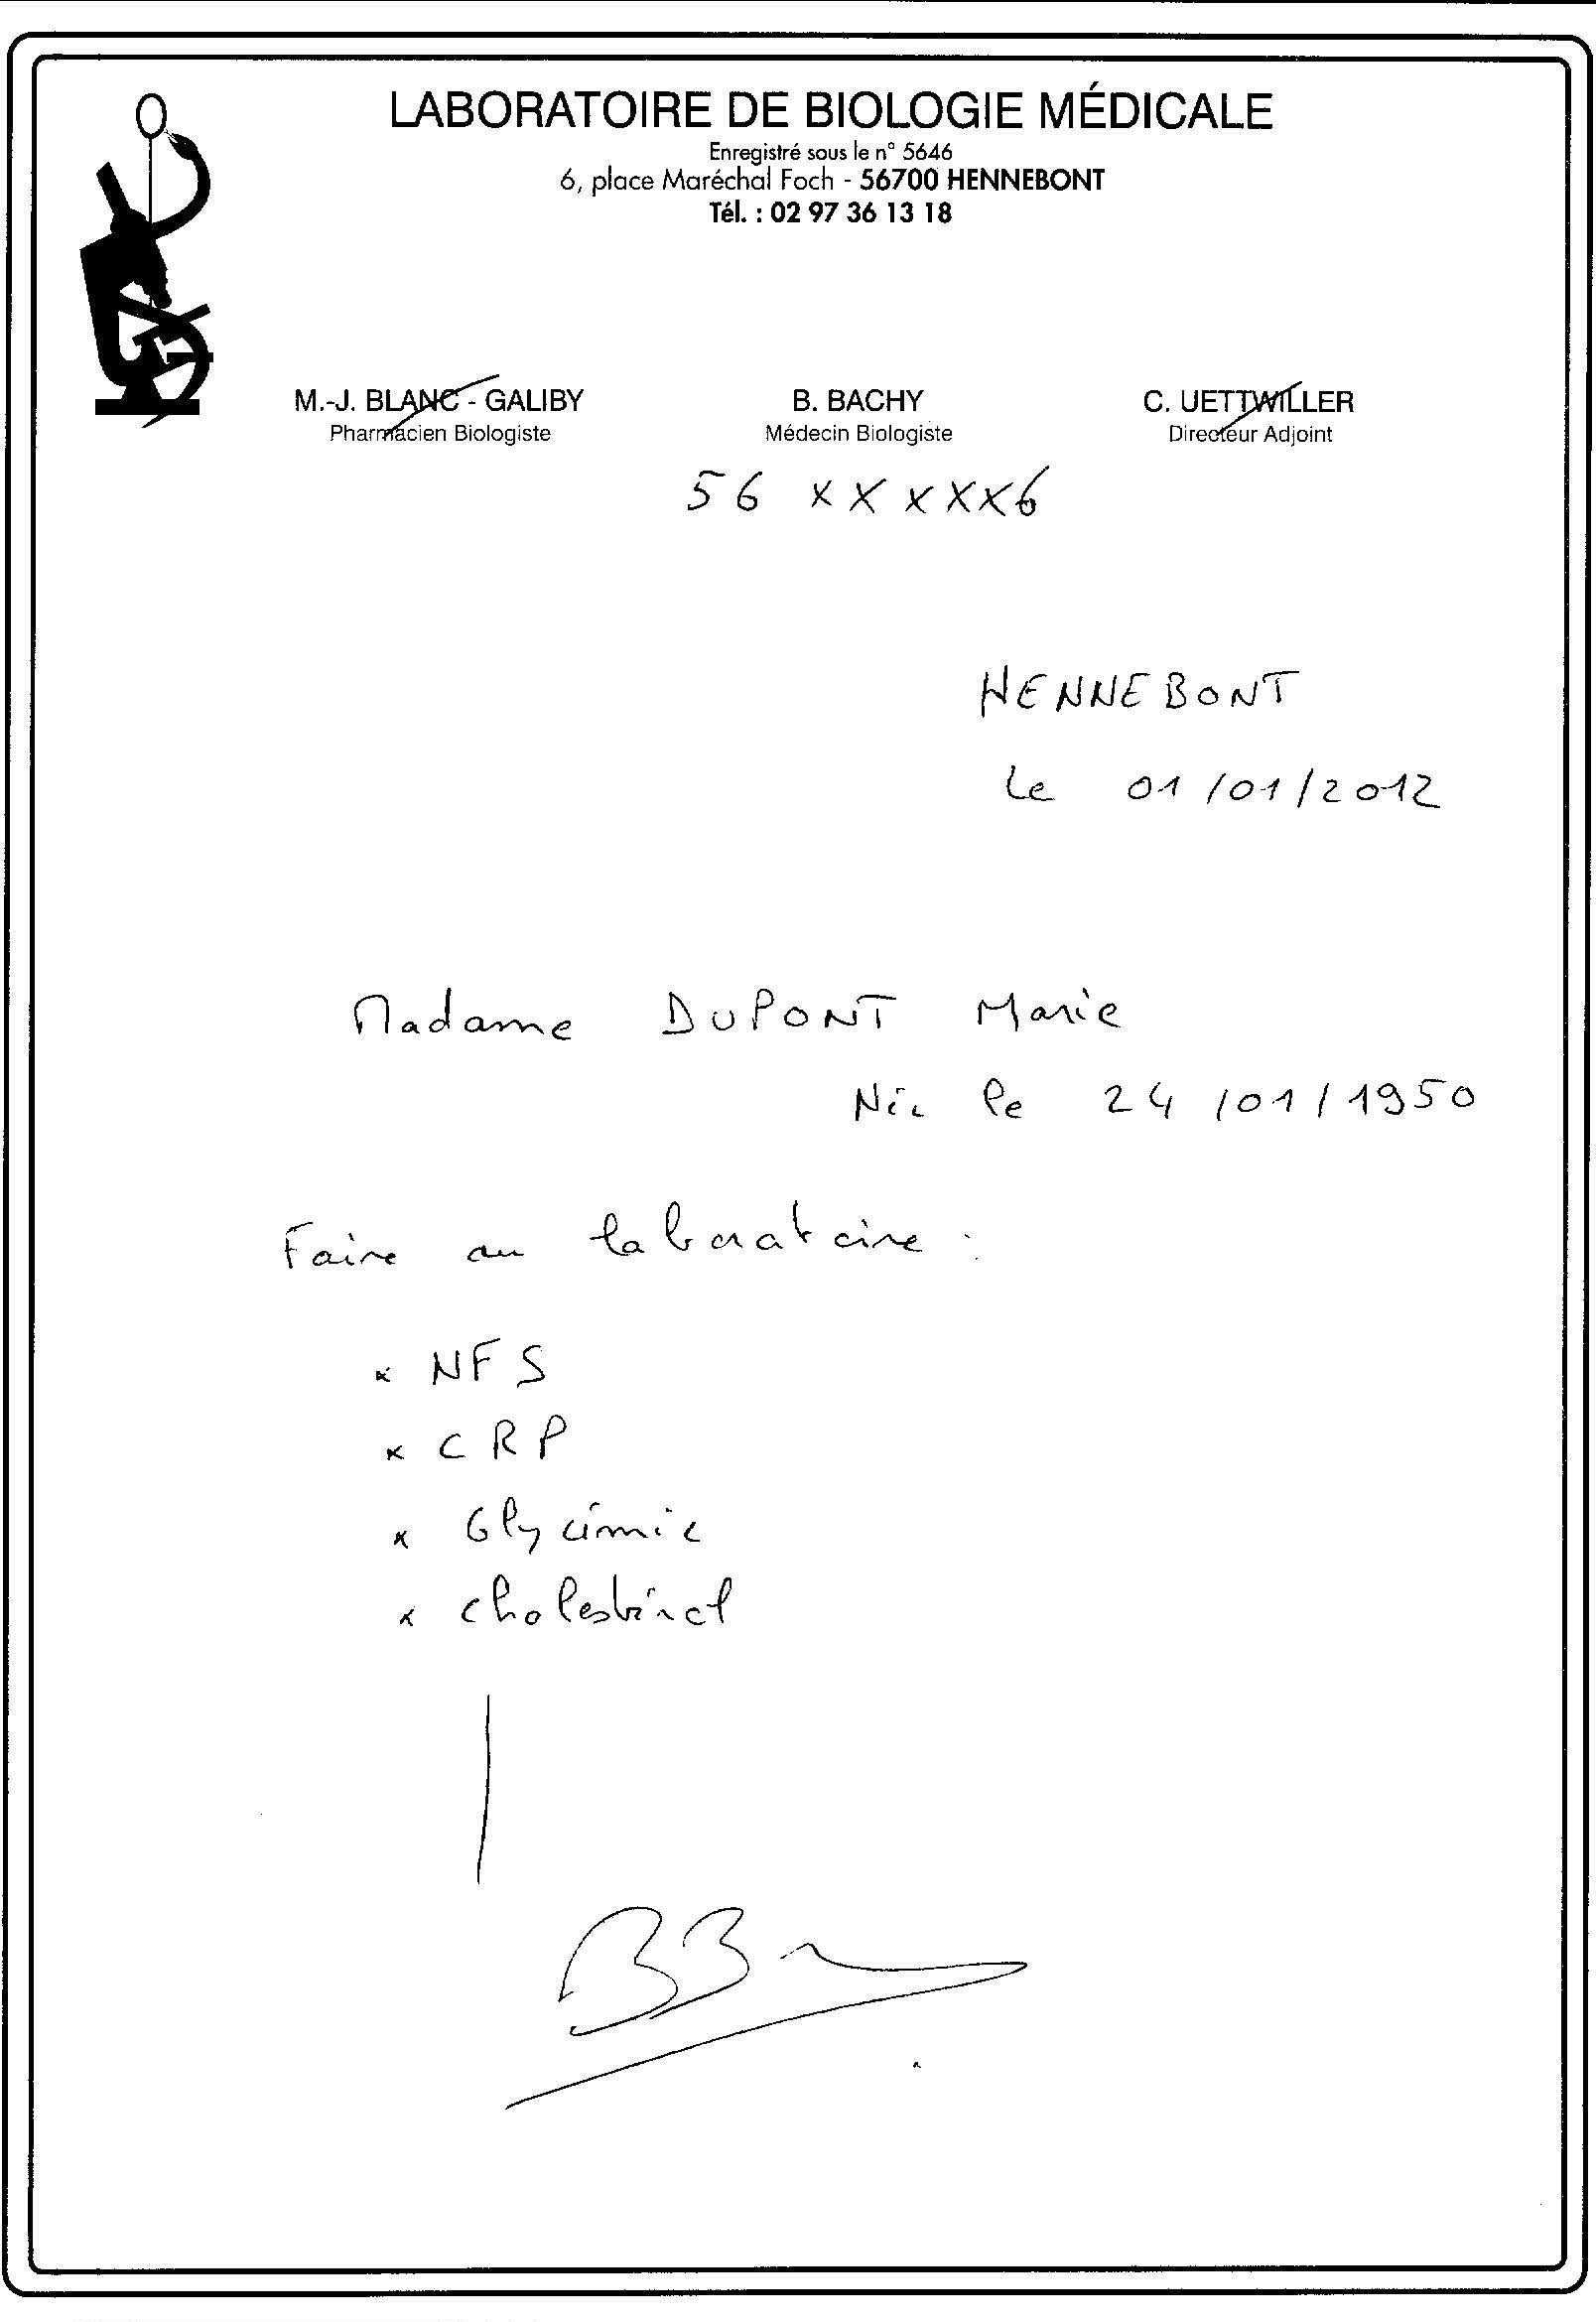 LABORATOIRE DE BIOLOGIE MÉDICALE
Enregistré sous le n° 5646
6, place Maréchal Foch - 56700 HENNEBONT
Tél. : 02 97 36 13 18
M.-J. BLANC - GALIBY B. BACHY C. UETTWILLER
Pharmacien Biologiste Médecin Biologiste Directeur Adjoint
56 XXXXX6
HENNEBONT
Le 01/01/2012
Madame DUPONT Marie
Née le 24/01/1950
Faire au laboratoire :
x NFS
x CRP
x Glycémie
x cholestérol